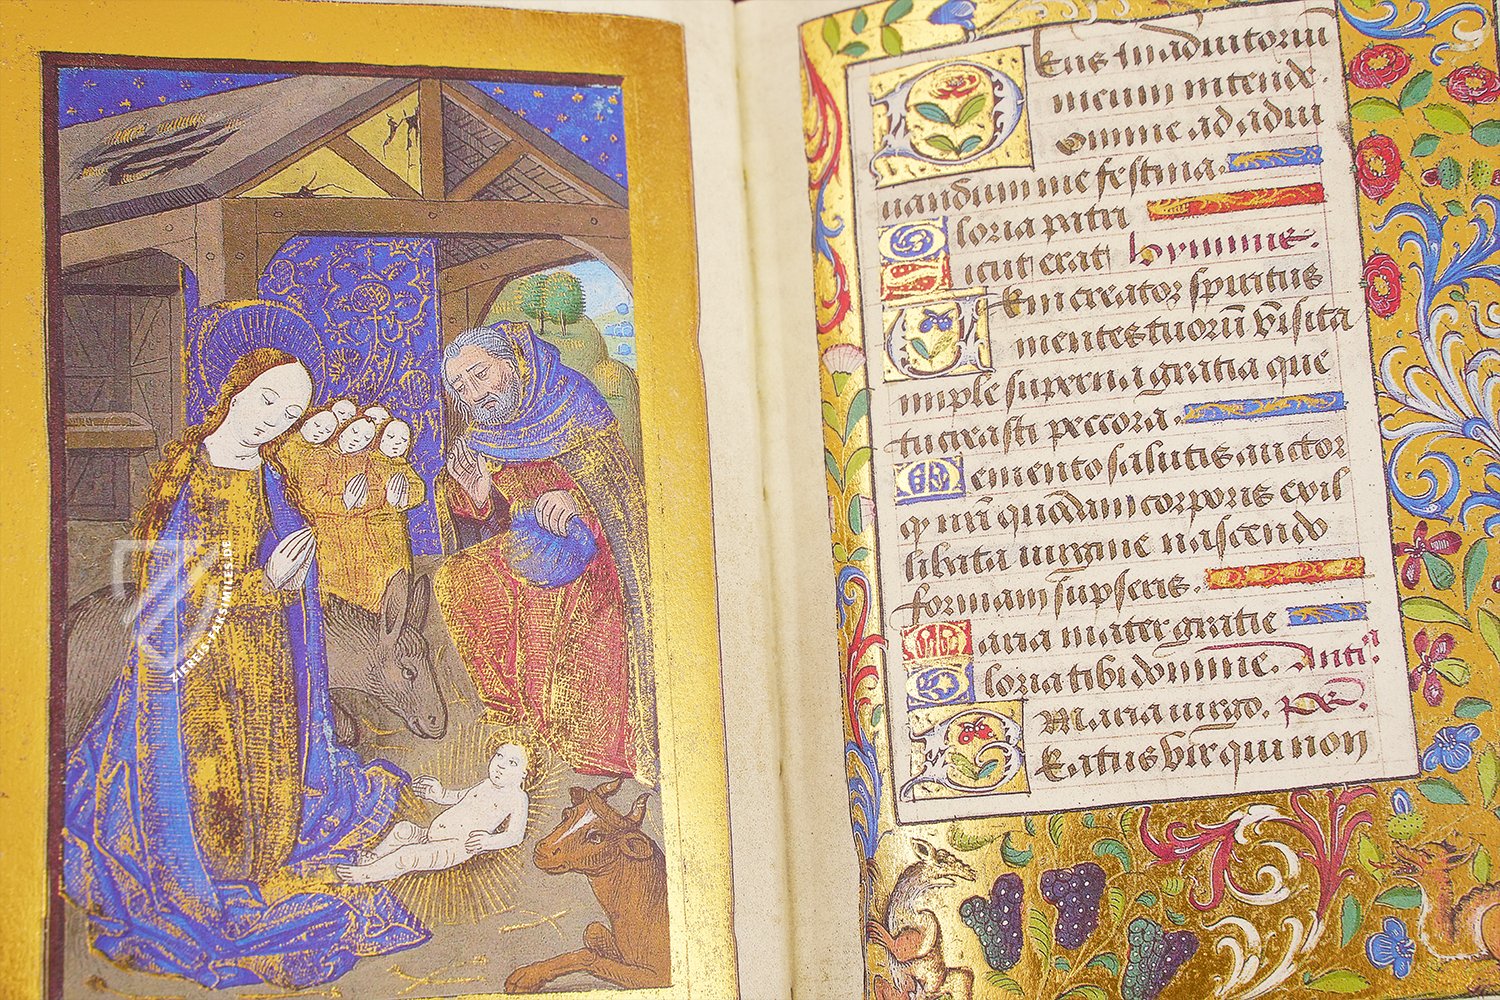 Deus in adiutoriu
meum intende.
Domine ad adiu
uandum me festina.
Gloria patri
Sicut erat hymnne.
Veni creator spiritus
mentes tuorū visita
imple superna gratia que
tu creasti peccora.
Memento salutis auctor
qp nrī quōdam corporis exil
libata uirgine nascendo
formam sūpseris.
Maria mater gratie
Gloria tibi domine. Anti.
Maria uirgo. ps.
Beatus vir qui non
ZIEREIS-FAKSIMILES.DE